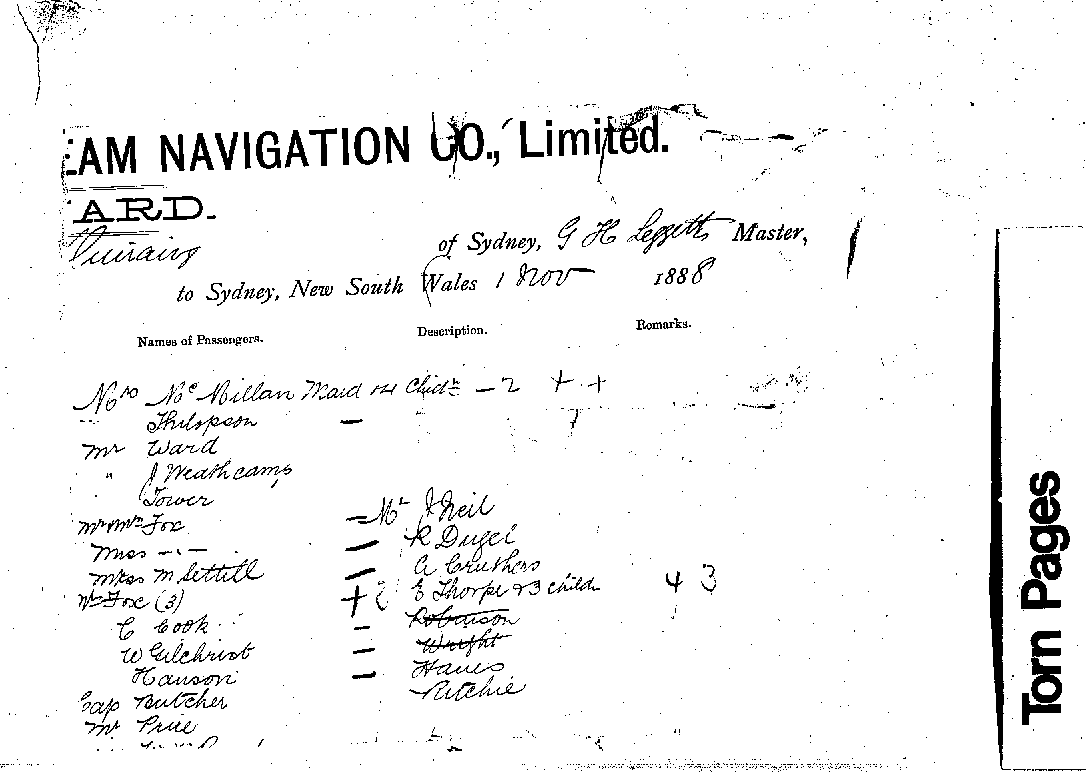 EAM NAVIGATION CO., Limited.
ARD.
of Sydney, G H Leggett Master,
to Sydney, New South Wales 1 Nov 1888
Names of Passengers. Description. Remarks.
Mc Millan Maid & Child - 2 + +
Thilopson -
Mr Ward
" J Weathcamp
Tower
Mr Mrs Fox - Mr J Neil
Miss - " - - R Dugel
Miss M Settill - A Cruthers
Fox (3) + 2 E Thorpe & 3 child 4 3
C Cook - Robinson
W Gilchrist - Wright
Hanson - Hanes
Cap Butcher Ritchie
Mr Prue
Torn Pages